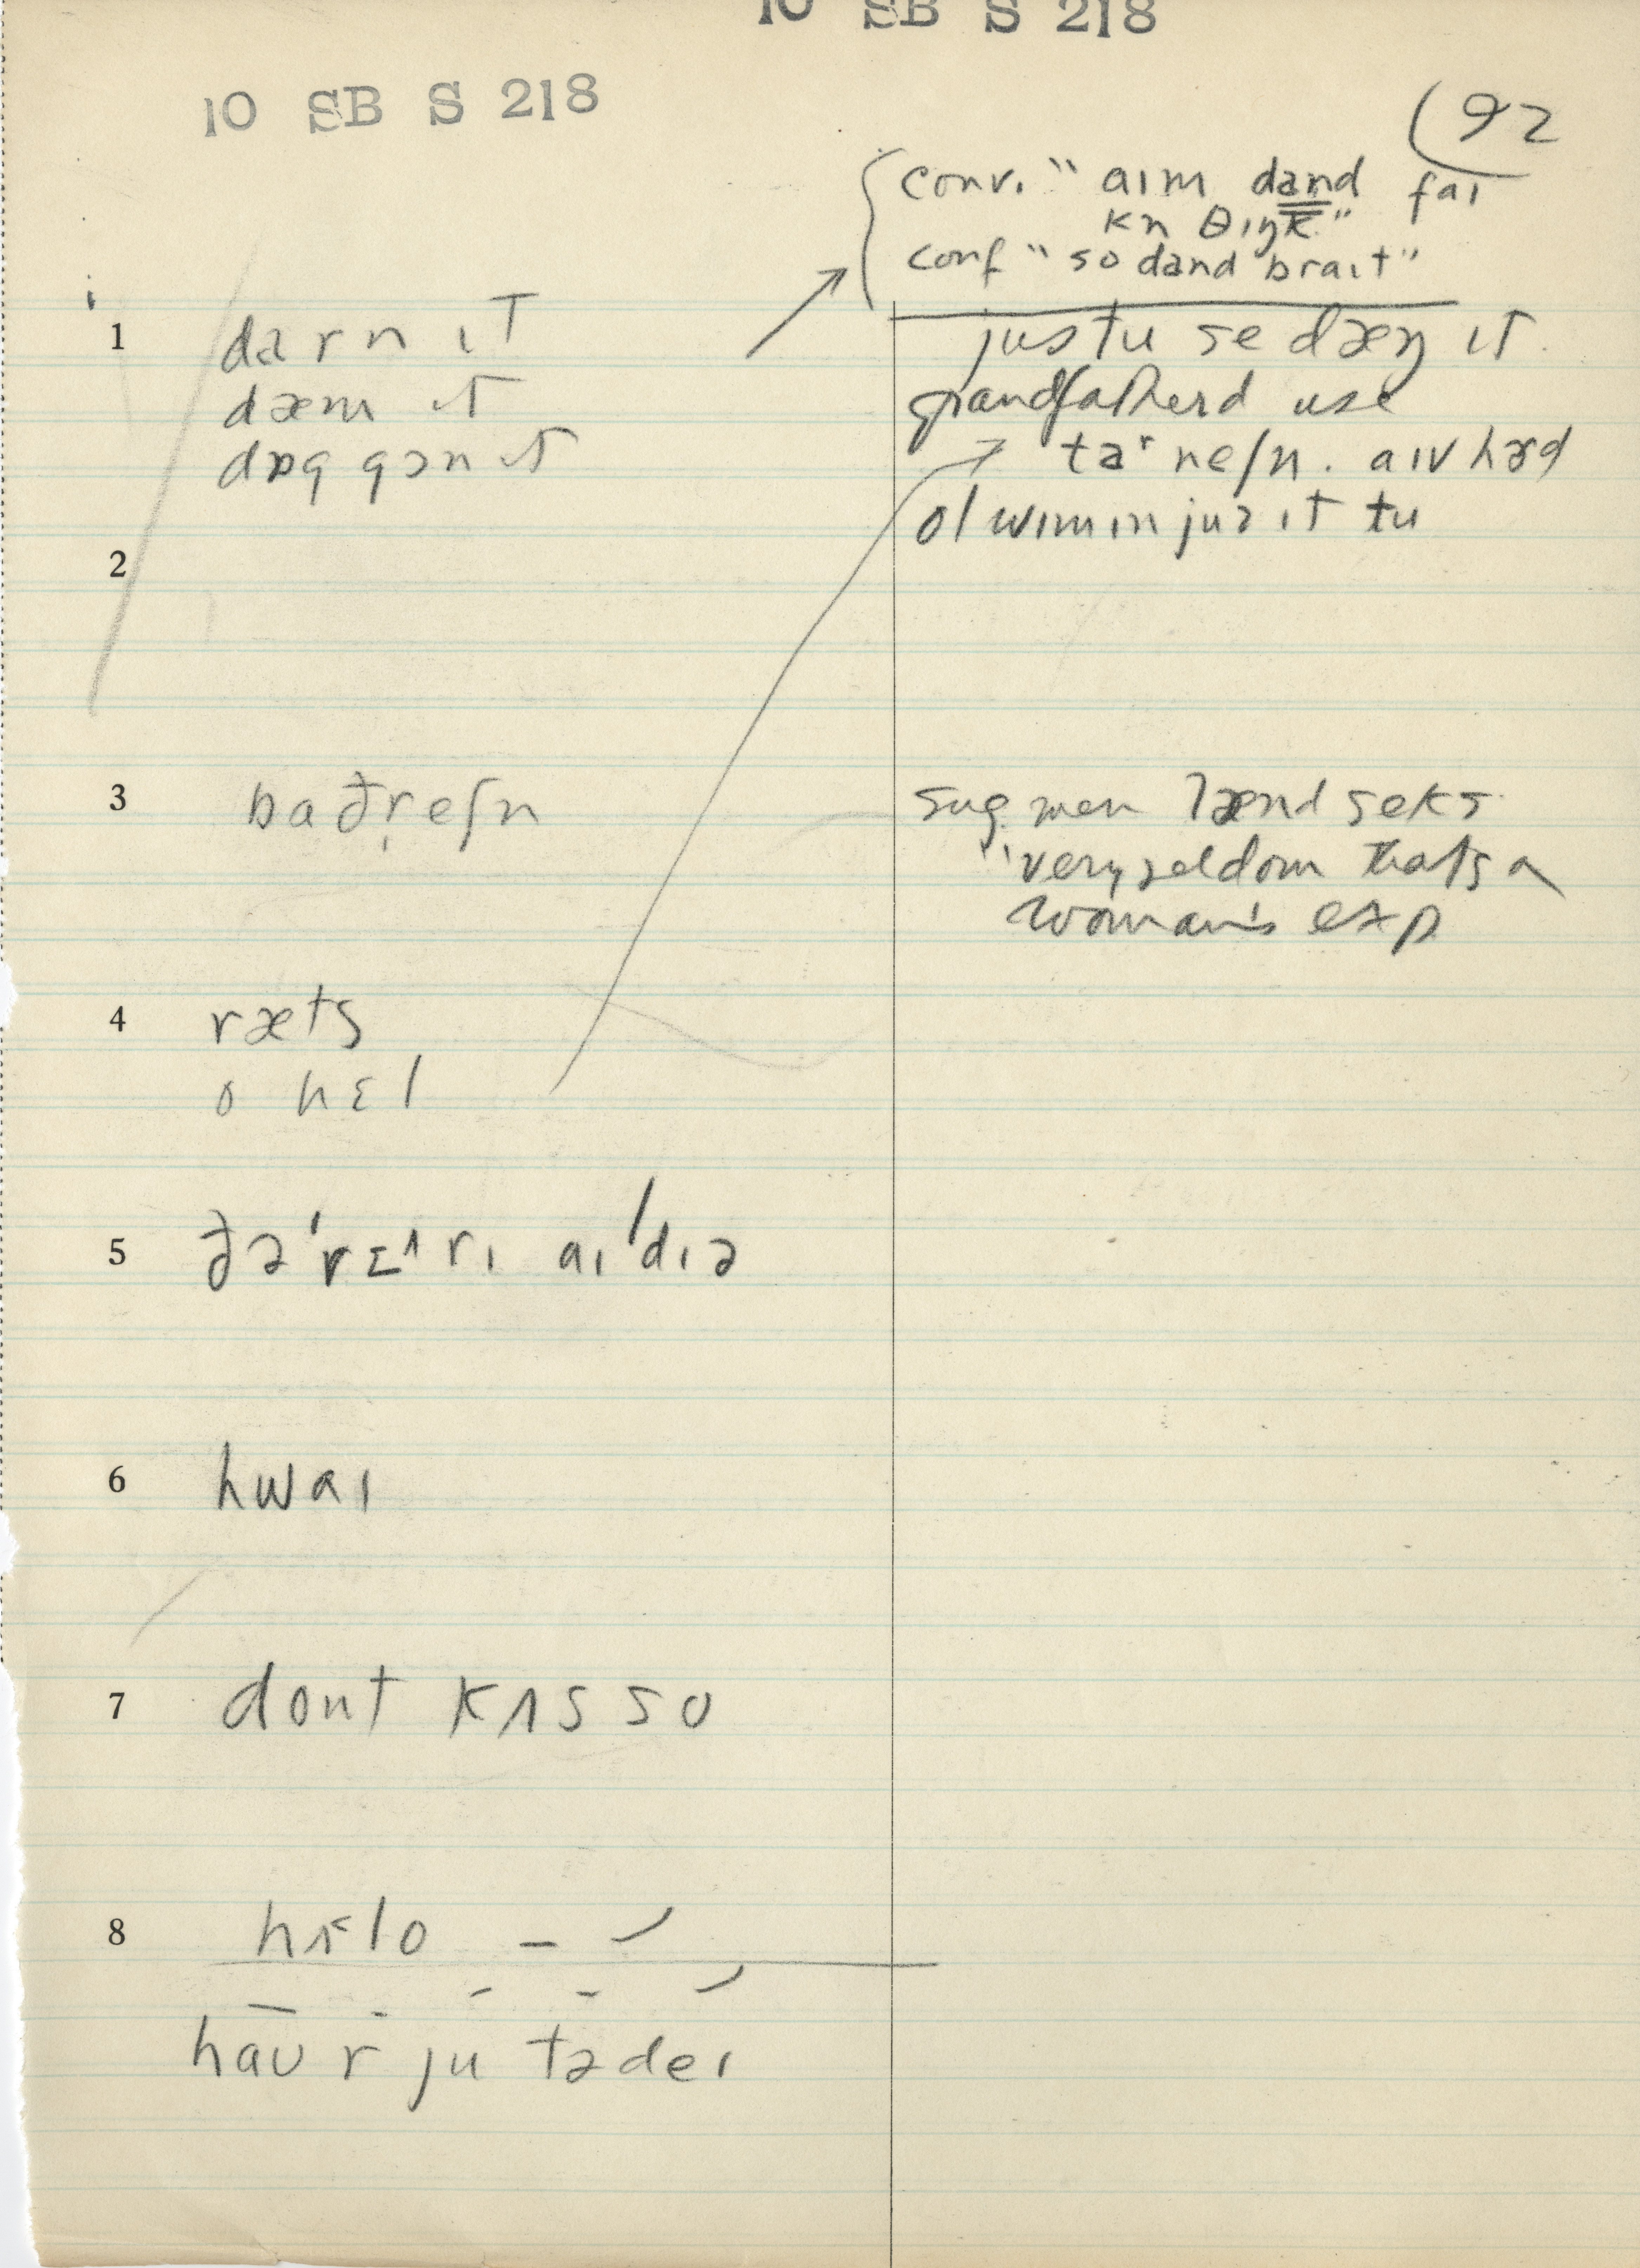 10 SB S 218
10 SB S 218
(92
conv. " aɪm dand faɪ
kn θɪŋk"
conf " so dand braɪt"
1 darn ɪt
dæm ɪt
dɒg gɔn ɪt
justu se dæŋ ɪt.
grandfatherd use
aɪv hɜd
ol wɪmɪn juz ɪt tu
2
3 baðr̩eʃn
sug. men ænd seks
"very seldom thats a
woman's exp
4 ræts
o hɛl
5 ðə 'rɛ^rɪ aɪ'dɪə
6 hwaɪ
7 dont kʌs so
8 hʌlo
haʊ r ju tədeɪ